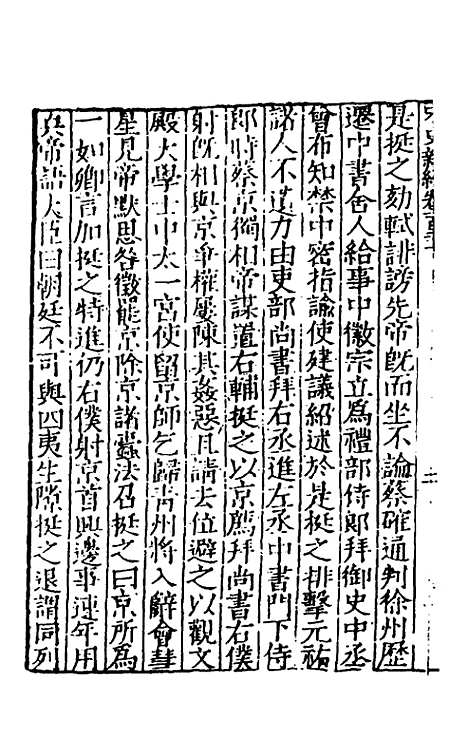 宋史新編卷一百
是挺之劾軾誹謗先帝旣而坐不論蔡確通判徐州歷
遷中書舍人給事中徽宗立爲禮部侍郞拜御史中丞
曾布知禁中密指諭使建議紹述於是挺之排擊元祐
諸人不遺力由吏部尚書拜右丞進左丞中書門下侍
郞時蔡京獨相帝謀置右輔挺之以京薦拜尚書右僕
射旣相與京爭權屢陳其姦惡且請去位避之以觀文
殿大學士中太一宮使留京師乞歸青州將入辭會彗
星見帝默思咎徵罷京除京諸蠹法召挺之曰京所爲
一如卿言加挺之特進仍右僕射京首興邊事連年用
兵帝語大臣曰朝廷不可與四夷生隙挺之退謂同列